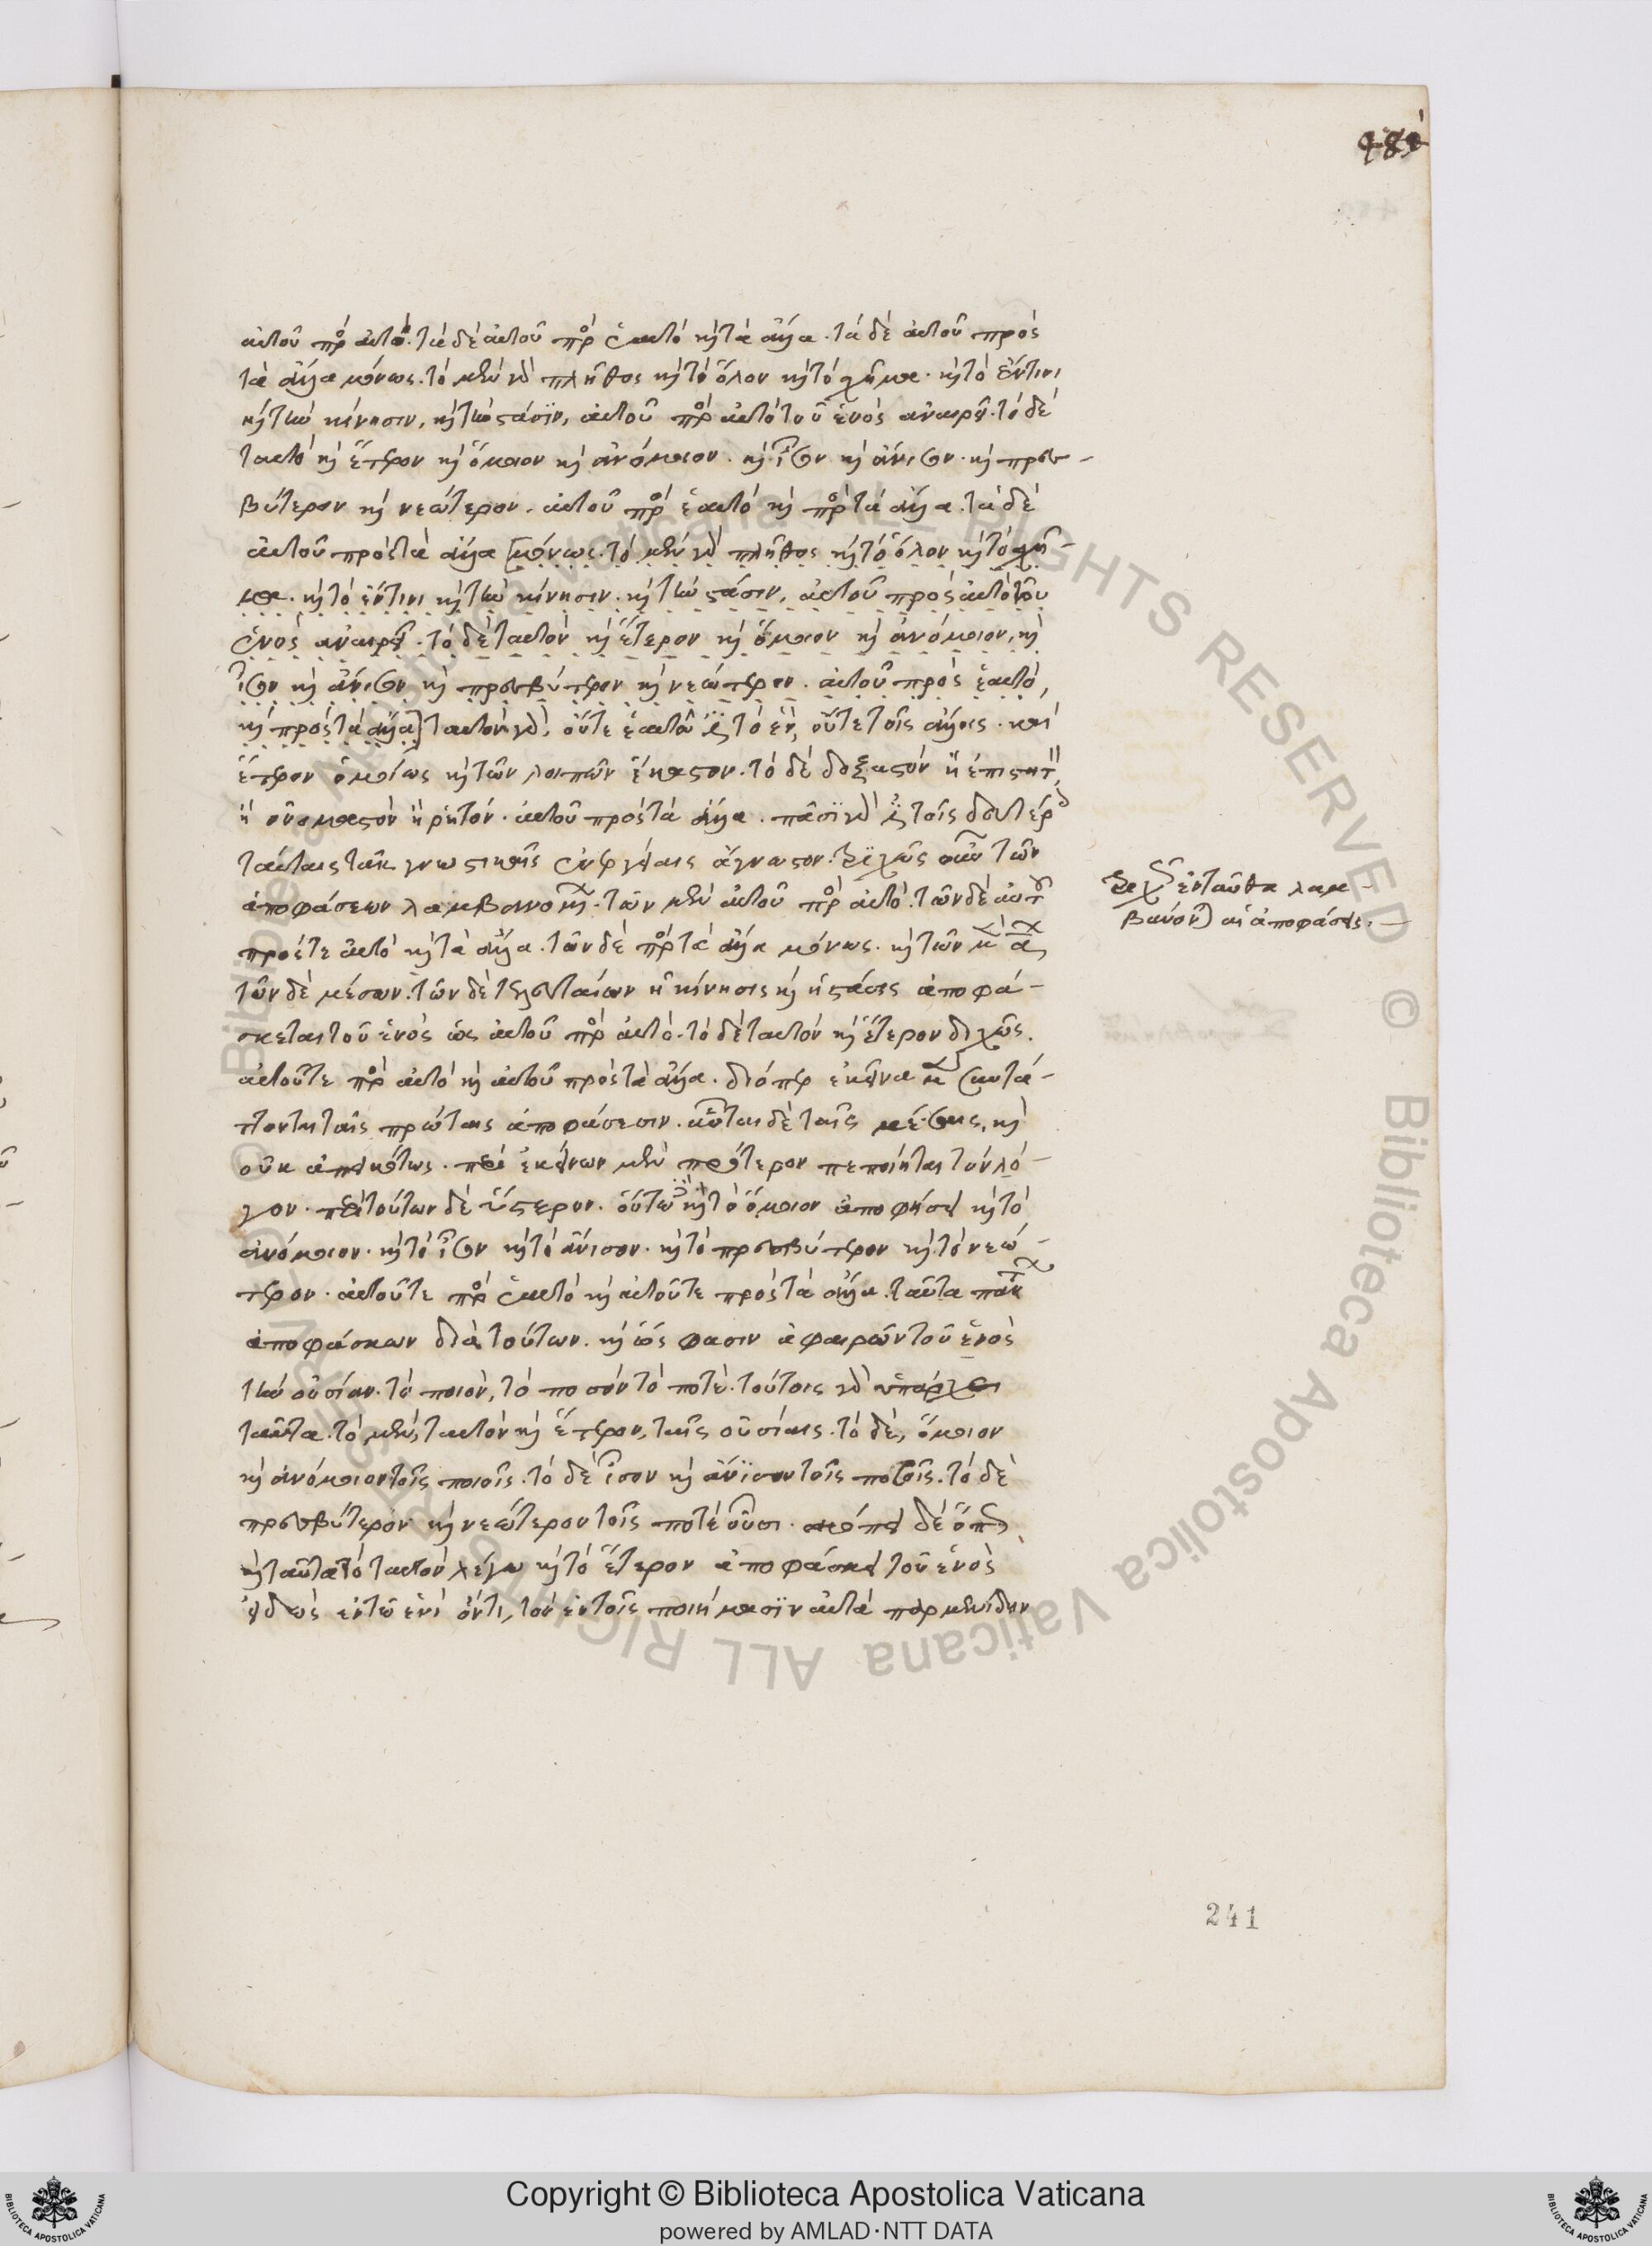 αὐτοῦ πρὸς αὐτό. τὰ δὲ αὐτοῦ πρὸς ἑαυτὸ καὶ τὰ ἄλλα. τὰ δὲ αὐτοῦ πρὸς
τὰ ἄλλα μόνως. τὸ μὲν γὰρ πλῆθος καὶ τὸ ὅλον καὶ τὸ σχῆμα. καὶ τὸ ἔν τινι
καὶ τὴν κίνησιν, καὶ τὴν στάσιν, αὐτοῦ πρὸς αὐτὸ τοῦ ἑνὸς ἀναιρεῖ. τὸ δὲ
ταυτὸ καὶ ἕτερον καὶ ὅμοιον καὶ ἀνόμοιον. καὶ ἴσον καὶ ἄνισον. καὶ πρεσ-
βύτερον καὶ νεώτερον. αὐτοῦ πρὸς ἑαυτὸ καὶ πρὸς τὰ ἄλλα. τὰ δὲ
αὐτοῦ πρὸς τὰ ἄλλα [μόνως. τὸ μὲν γὰρ πλῆθος καὶ τὸ ὅλον καὶ τὸ σχῆ-
μα. καὶ τὸ ἔν τινι καὶ τὴν κίνησιν. καὶ τὴν στάσιν, αὐτοῦ πρὸς αὐτὸ τοῦ
ἑνὸς ἀναιρεῖ. τὸ δὲ ταυτὸν καὶ ἕτερον καὶ ὅμοιον καὶ ἀνόμοιον, καὶ
ἴσον καὶ ἄνισον καὶ πρεσβύτερον καὶ νεώτερον. αὐτοῦ πρὸς ἑαυτό,
καὶ πρὸς τὰ ἄλλα] ταυτὸν γὰρ, οὔτε ἑαυτῷ ἐστι τὸ ἕν, οὔτε τοῖς ἄλλοις. καὶ
ἕτερον ὁμοίως καὶ τῶν λοιπῶν ἕκαστον. τὸ δὲ δοξαστὸν ἢ ἐπιστητὸν,
ἢ ὀνομαστὸν ἢ ῥητόν. αὐτοῦ πρὸς τὰ ἄλλα. πᾶσι γὰρ ἐστι τοῖς δευτέροις
ταύταις ταῖς γνωστικαῖς ἐνεργείαις ἄγνωστον. τριχῶς οὖν τῶν
ἀποφάσεων λαμβανομένων. τῶν μὲν αὐτοῦ πρὸς αὐτό. τῶν δὲ αὐτοῦ
πρός τε αὐτὸ καὶ τὰ ἄλλα. τῶν δὲ πρὸς τὰ ἄλλα μόνως. καὶ τῶν μὲν πρώτων,
τῶν δὲ μέσων. τῶν δὲ τελευταίων ἡ κίνησις καὶ ἡ στάσις ἀποφά-
σκεται τοῦ ἑνὸς ὡς αὐτοῦ πρὸς αὐτό. τὸ δὲ ταυτὸν καὶ ἕτερον διχῶς.
αὐτοῦ τε πρὸς αὐτὸ καὶ αὐτοῦ πρὸς τὰ ἄλλα. διόπερ ἐκεῖνα μὲν συντά-
ττονται ταῖς πρώταις ἀποφάσεσιν. αὗται δὲ ταῖς μέσαις, καὶ
οὐκ ἀπεικότως. περὶ ἐκείνων μὲν πρότερον πεποίηται τὸν λό-
γον. περὶ τούτων δὲ ὕστερον. οὕτω καὶ τὸ ὅμοιον ἀποφήσει καὶ τὸ
ἀνόμοιον. καὶ τὸ ἴσον καὶ τὸ ἄνισον. καὶ τὸ πρεσβύτερον καὶ τὸ νεώ-
τερον. αὐτοῦ τε πρὸς ἑαυτὸ καὶ αὐτοῦ τε πρὸς τὰ ἄλλα. ταῦτα πάντα
ἀποφάσκων διὰ τούτων. καὶ ὥς φασιν ἀφαιρῶν τοῦ ἑνὸς
τὴν οὐσίαν. τὸ ποιὸν, τὸ ποσόν τὸ ποτέ. τούτοις γὰρ ὑπάρχει
ταῦτα. τὸ μὲν, ταυτὸν καὶ ἕτερον, ταῖς οὐσίαις. τὸ δὲ, ὅμοιον
καὶ ἀνόμοιον τοῖς ποιοῖς. τὸ δὲ ἴσον καὶ ἄνισον τοῖς ποσοῖς. τὸ δὲ
πρεσβύτερον καὶ νεώτερον τοῖς ποτὲ οὖσι. σκόπει δὲ ὅπως
καὶ ταῦτα τὸ ταυτὸν λέγω καὶ τὸ ἕτερον ἀποφάσκει τοῦ ἑνὸς
εἰδὼς ἐν τῷ ἑνὶ ὄντι, τὸν ἐν τοῖς ποιήμασιν αὐτὰ παρμενίδην
τριχῶς ἐνταῦθα λαμ-
βάνονται αἱ ἀποφάσεις.
241
Copyright © Biblioteca Apostolica Vaticana
powered by AMLAD·NTT DATA